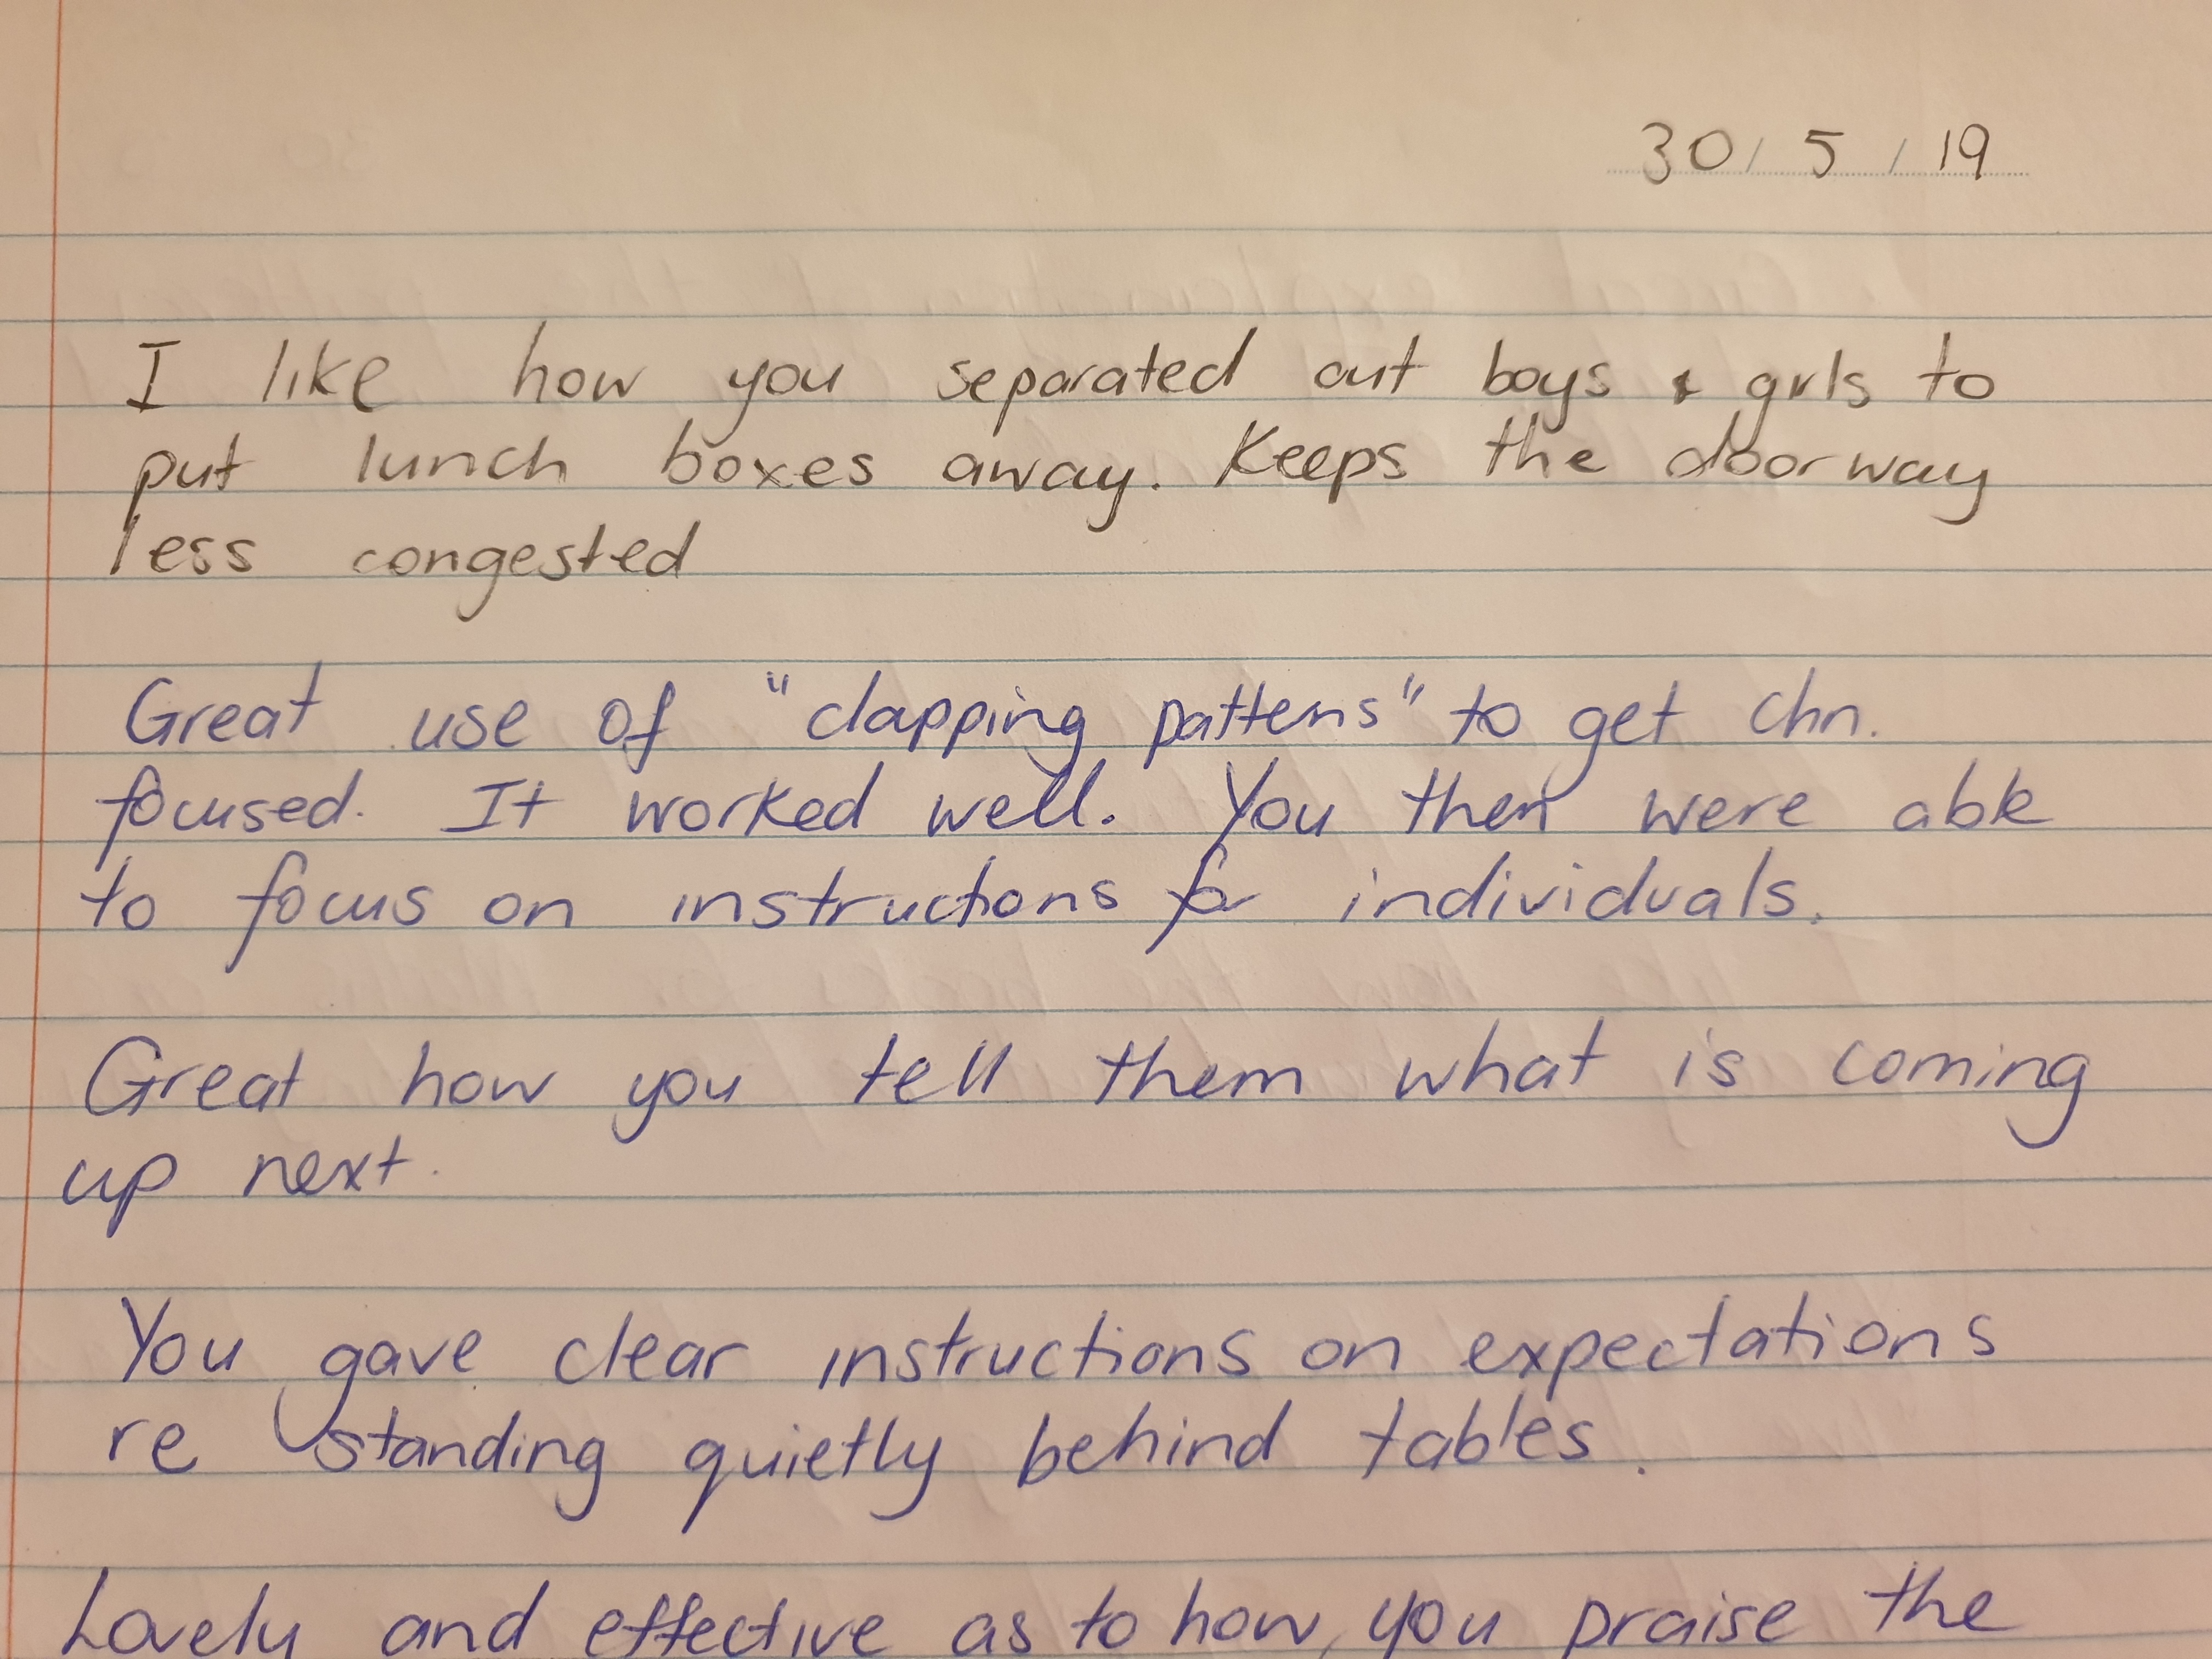 30/5/19
I like how you separated out boys & girls to
put lunch boxes away. Keeps the doorway
less congested
Great use of "clapping pattens" to get chn.
focused. It worked well. You then were able
to focus on instructions for individuals.
Great how you tell them what is coming
up next.
You gave clear instructions on expectations
re standing quietly behind tables.
Lovely and effective as to how you praise the